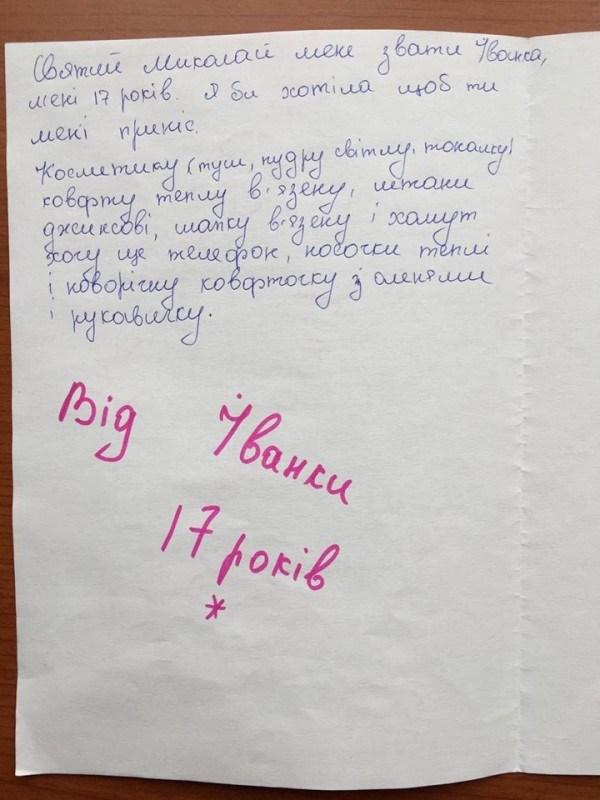 Святий Миколай мене звати Іванка,
мені 17 років. Я би хотіла щоб ти
мені приніс.
Косметику (туш, пудру світлу, тоналку)
ковфту теплу в'язену, штани
джинсові, шапку в'язену і хомут
хочу ще телефон, носочки теплі
і новорічну ковфточку з оленями
і рукавичку.
Від Іванки
17 років
*